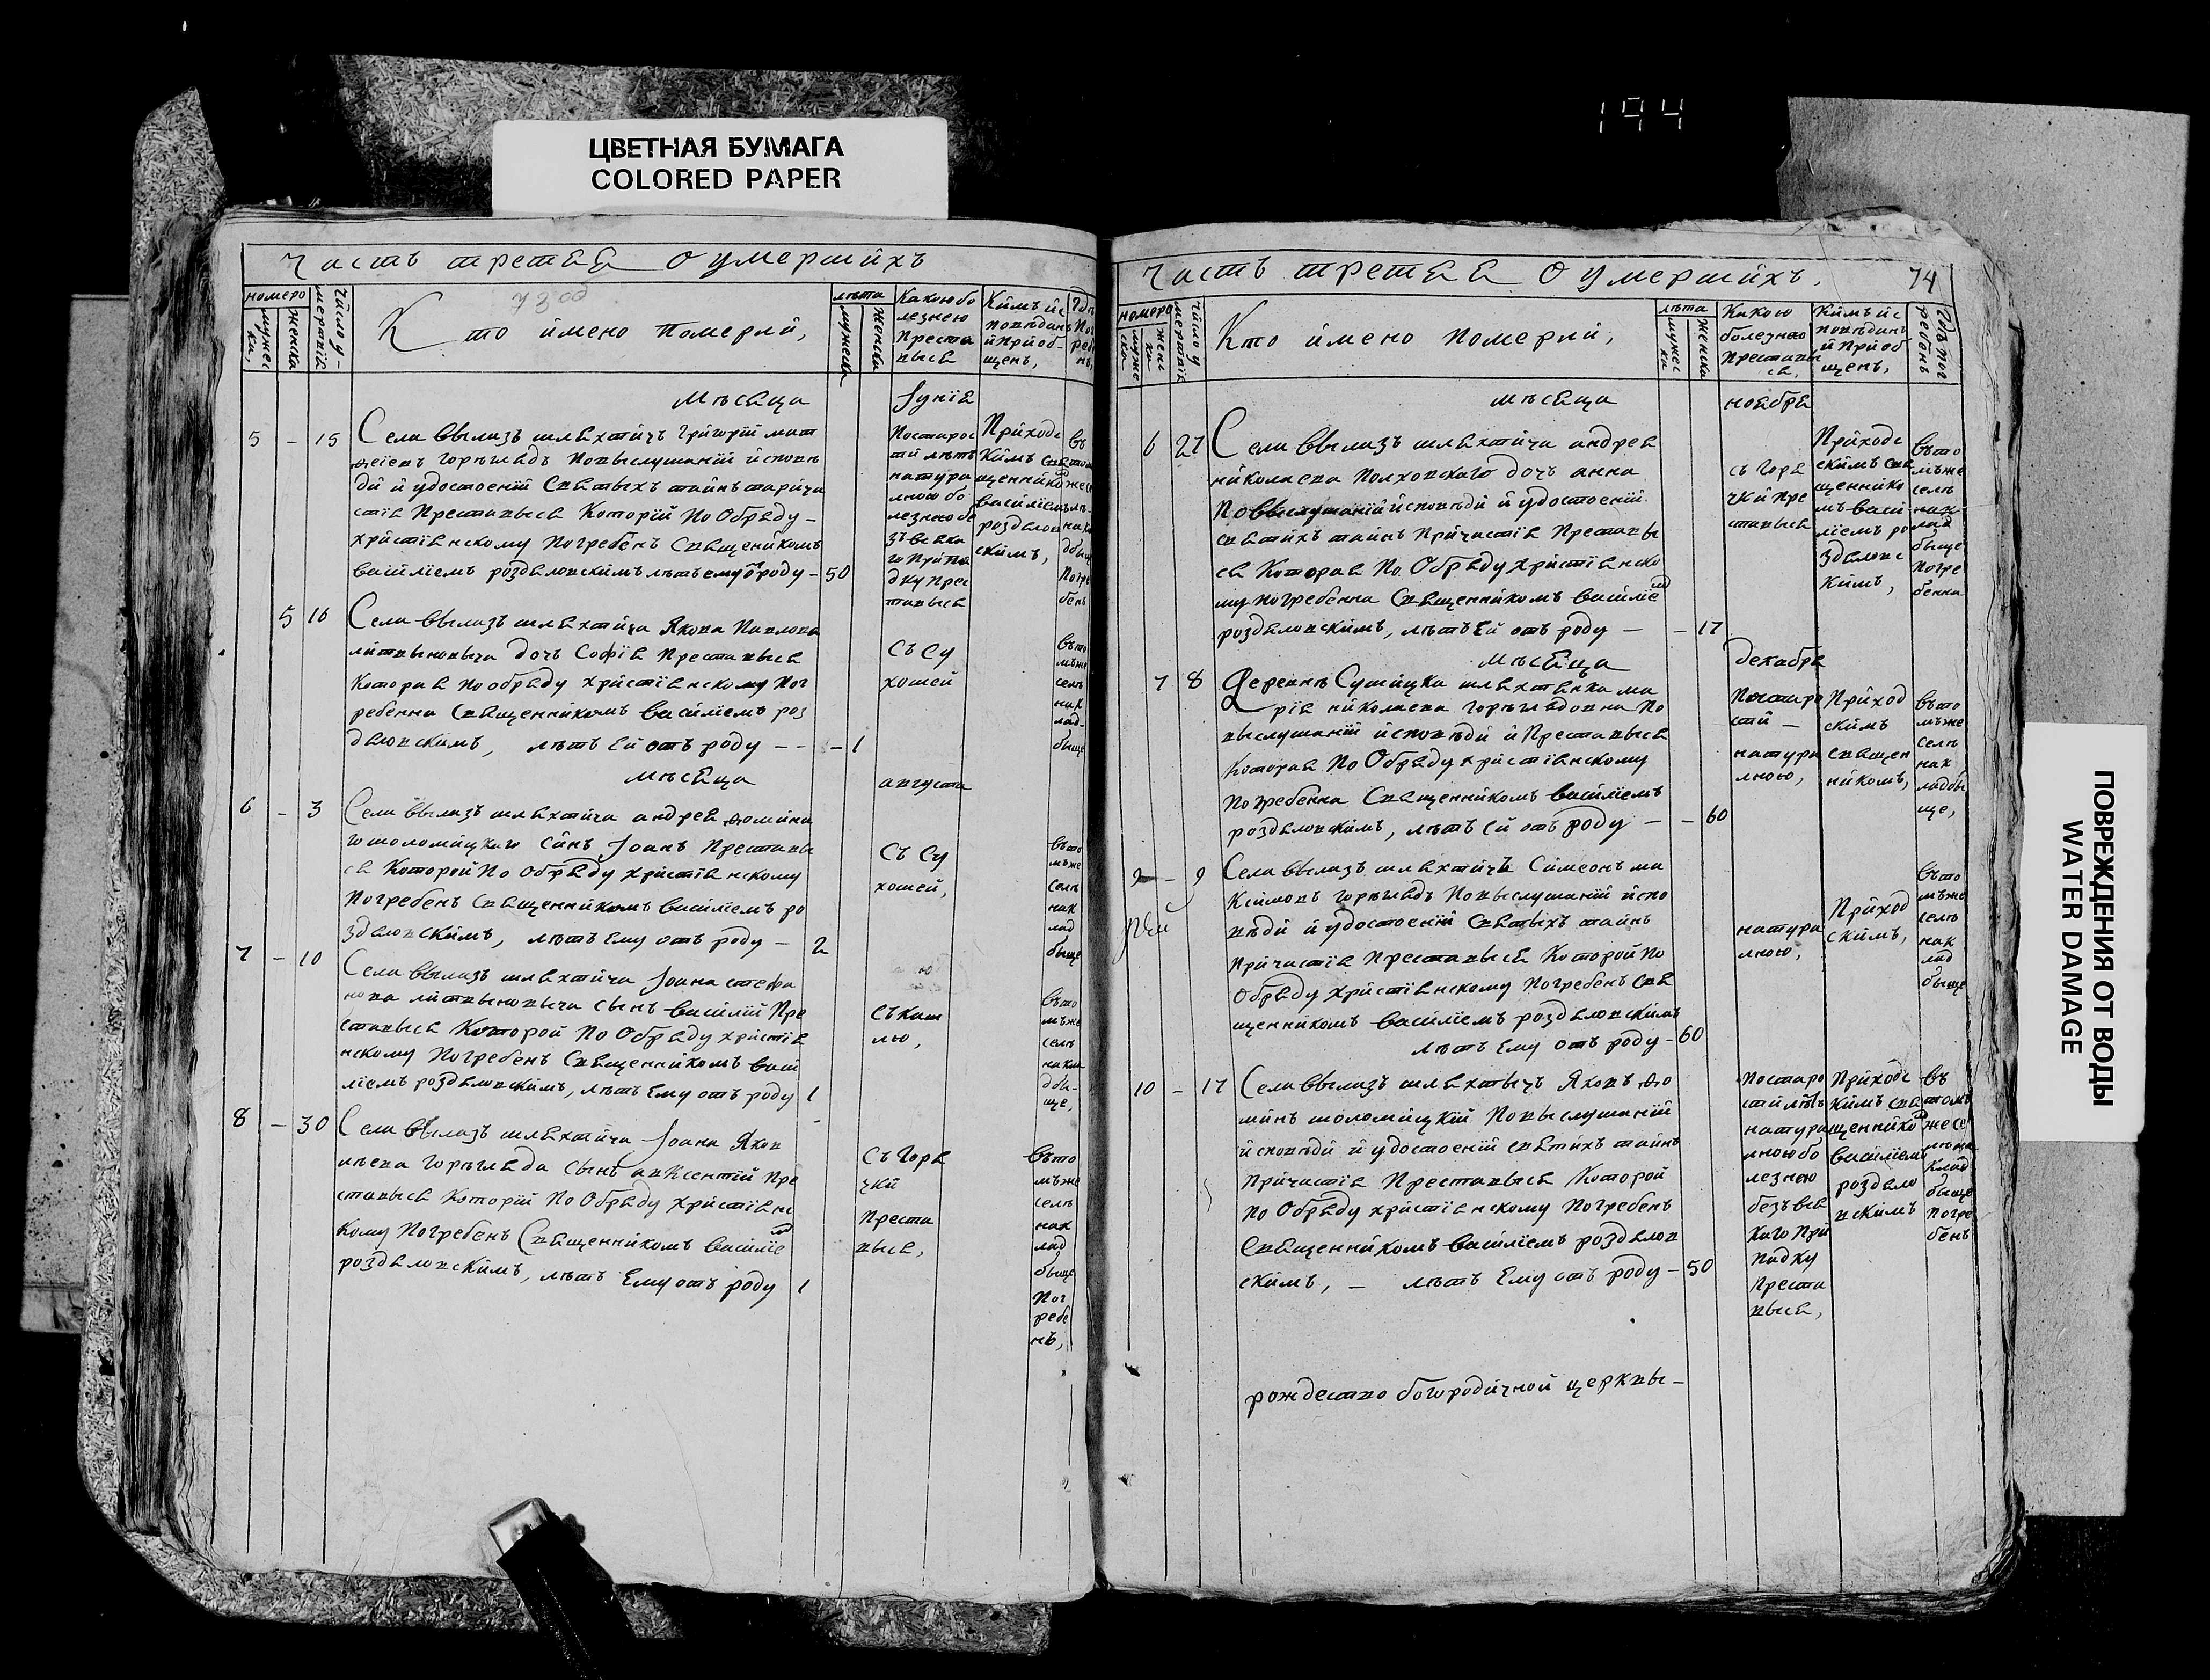 ЦВЕТНАЯ БУМАГА
COLORED PAPER
194
ПОВРЕЖДЕНИЯ ОТ ВОДЫ
WATER DAMAGE
Часть третяя о умершихъ
73 об
номеро
мужеска,
женска
число умерших
Кто имено померли,
лѣта
мужеска
женска
Какою бо
лезнею
Преста
вися
Кимъ ис
повѣданъ
и Приоб-
щенъ,
Мѣсяца Іунія
5 - 15 Села Вылазъ шляхтичъ Григорій мат
феіевъ Горыглядъ Повыслушаніи исповѣ
ди и удостоеніи Святыхъ таинъ прича
стія Преставися Которій По Обряду -
христіянскому Погребенъ Священикомъ
василіемъ роздяловскимъ лѣтъ ему от роду - 50
Постарос
ти лѣтъ
натура
лною бо
лезнею бе
зъ всяка
го Припа
дку Прес
тавися
Приходс
кимъ свя
щеннико
василіемъ
роздялов
скимъ,
5 16 Села Вылазъ шляхтича Якова Павлова
литвиновича дочь Софія Преставися
Которая по обряду христіянскому Пог
ребенна Священникомъ василіемъ роз
дяловскимъ, лѣтъ Ей отъ роду - - - 1
Съ Су
хотей
въ то
мъ же
селѣ
на к
лад-
бище
Мѣсяца августа
6 - 3 Села Вылазъ шляхтича андрея фомина
го шоломицкого Синъ Іоанъ Престави
ся Которой По Обряду христіянскому
Погребенъ Священникомъ василіемъ ро
здяловскимъ, лѣтъ Ему отъ роду - 2
Съ Су
хотей,
въ то
мъ же
селѣ
на к
лад
бище
7 - 10 Села Вылазъ шляхтича Іоана стефа
нова литвиновича сынъ василій Пре
ставися Которой По Обряду христія
нскому Погребенъ Священникомъ васи
ліемъ роздяловскимъ, лѣтъ Ему отъ роду 1
Съ Каш
лю,
въ то
мъ же
селѣ
на кла
дби-
ще,
8 - 30 Села Вылазъ шляхтича Іоана Яков
лѣева Горыгляда сынъ авксентій Пре
ставися Которій По Обряду христіянс
кому Погребенъ Священникомъ василіе
роздяловскимъ, лѣтъ Ему отъ роду 1
Съ Горя
чки
Преста
вися,
въ то
мъ же
селѣ
на к
лад
бище
Пог
ребе
нъ,
Часть третяя о умершихъ.
74
номеро
мужеска
женска
число умерших
Кто имено померли,
лѣта
мужеска
женска
Какою
болезнею
Престави
ся,
Кимъ ис
повѣданъ
и Приоб
щенъ,
Гдѣ пог
ребенъ
Мѣсяца ноября
6 27 Села Вылазъ шляхтича андрея
николаева Полховского дочь анна
По выслушаніи исповѣди и удостоеніи
святихъ таинъ Причастія Престави
ся Которая По Обряду христіянско
му погребенна Священникомъ василіе
роздяловскимъ, лѣтъ Ей отъ роду - - 17
съ Горя
чки Пре
ставися
Приходс
скимъ свя
щеннико
мъ васи
ліемъ ро
здяловс
кимъ,
въ то
мъ же
селѣ
на к
лад
бище
Погре
бенна
Мѣсяца декабря
7 8 Деревнѣ Сушицка шляхтянка ма
рія николаева Горыглядовна По
выслушаніи исповѣди и Преставися
Которая По Обряду христіянскому
Погребенна Священникомъ василіемъ
роздяловскимъ, лѣтъ ей отъ роду - - 60
Постаро
сти -
натура
лною,
Приход
скимъ
священ
никомъ,
въ то
мъ же
селѣ
на к
ладби
ще,
9 - 9 Села Вылазъ шляхтичъ Симеонъ ма
Ксимовъ Горыглядъ Повыслушаніи испо
вѣди и удостоеніи Святыхъ таинъ
Причастія Преставися Которой По
Обряду христіянскому Погребенъ Свя
щенникомъ василіемъ роздяловскимъ
лѣтъ Ему отъ роду - 60
натура
лною,
Приход
скимъ,
въ то
мъ же
селѣ
на к
лад
бище
10 - 17 Села Вылазъ шляхтычъ Яковъ фо
минъ шоломицкій Повыслушаніи
исповѣди и удостоеніи святихъ таинъ
Причастія Преставися Которой
По Обряду христіянскому Погребенъ
Священникомъ василіемъ роздялов
скимъ, - лѣтъ Ему отъ роду - 50
Постаро
сти лѣтъ
натура
лною бо
лезнею
безъ вся
каго При
падку
Преста
вися,
Приходс
кимъ свя
щеннико
василіемъ
роздяло
вскимъ
въ
томъ
же се
лѣ на
клад
бище
Погре
бенъ
рождество богородичной церквы -